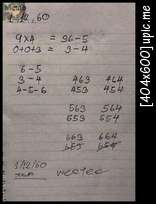 9XA = 36-5
0+0+3 = 3-4
6-5
3-4 463 464
4-5-6 453 454
563 564
553 554
663 664
653 654
[404x600] upic.me